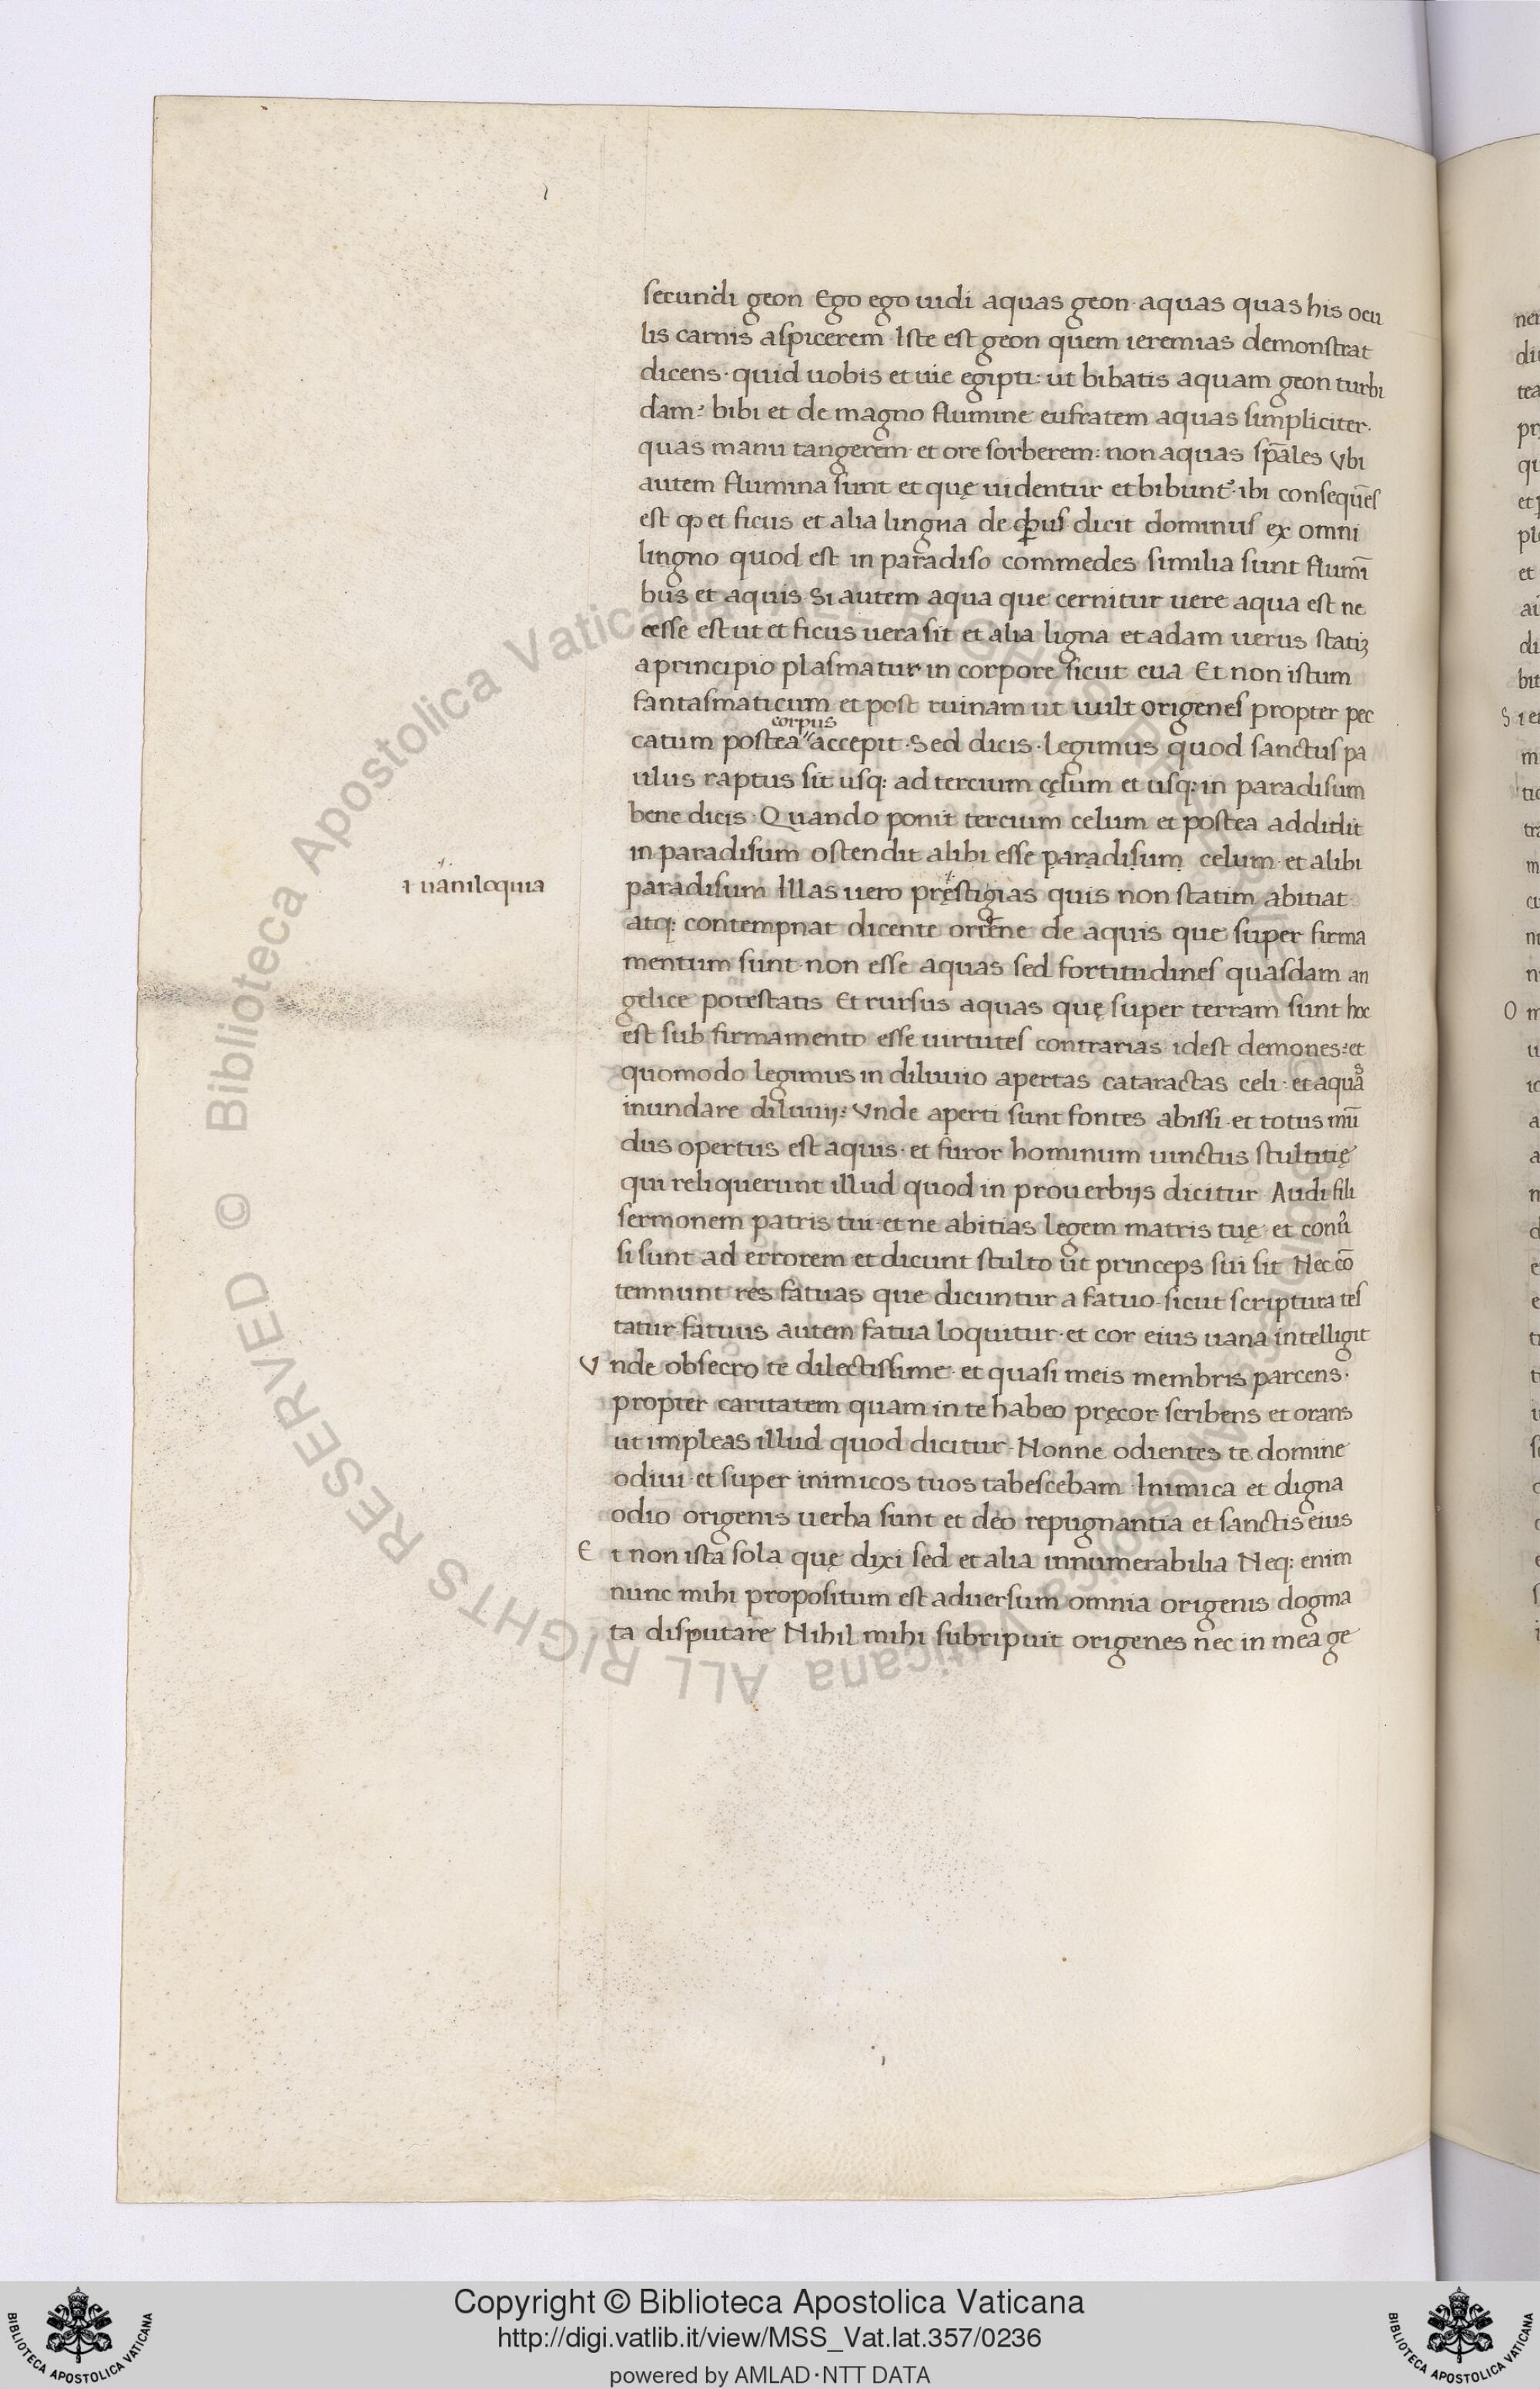 secundi geon Ego ego uidi aquas geon· aquas quas his ocu
lis carnis aspicerem· Iste est geon quem ieremias demonstrat
dicens· quid uobis et uie egipti: ut bibatis aquam geon turbi
dam? bibi et de magno flumine eufratem aquas simpliciter·
quas manu tangerem et ore sorberem: non aquas sp̄ales Vbi
autem flumina sunt et quę uidentur et bibunt᷑· ibi consequēs
est ꝙ et ficus et alia lingna de qͥbus dicit dominus ex omni
lingno quod est in paradiso commedes similia sunt flumī
bus et aquis Si autem aqua que cernitur uere aqua est ne
cesse est ut et ficus uera sit et alia ligna et adam uerus statiꝫ
a principio plasmatur in corpore sicut eua Et non istum
fantasmaticum et post ruinam ut uult origenes propter pec
corpus
catum postea " accepit· Sed dicis· Legimus quod sanctus pa
ulus raptus sit usq: ad tercium cęlum et usq: in paradisum
bene dicis· Quando ponit tercium celum et postea addidit
in paradisum ostendit alibi esse paradisum celum· et alibi
ł uaniloquia
paradisum Illas uero pręstigias quis non statim abitiat
atq: contempnat dicente origene de aquis que super firma
mentum sunt· non esse aquas sed fortitudines quasdam an
gelice potestatis Et rursus aquas quę super terram sunt hoc
est sub firmamento esse uirtutes contrarias idest demones: et
quomodo legimus in diluuio apertas cataractas celi· et aquā
inundare diluuij: Vnde aperti sunt fontes abissi· et totus mū
dus opertus est aquis· et furor hominum uinctus stultitię
qui reliquerunt illud quod in prouerbijs dicitur Audi fili
sermonem patris tui· et ne abitias legem matris tuę· et conū
si sunt ad errorem et dicunt stulto ut princeps sui sit Nec cō
temnunt res fatuas que dicuntur a fatuo· sicut scriptura tes
tatur· fatuus autem fatua loquitur· et cor eius uana intelligit
Vnde obsecro te dilectissime· et quasi meis membris parcens·
propter caritatem quam in te habeo pręcor scribens et orans
ut impleas illud quod dicitur· Nonne odientes te domine
odiui· et super inimicos tuos tabescebam· Inimica et digna
odio origenis uerba sunt et deo repugnantia et sanctis eius
Et non ista sola quę dixi sed et alia innumerabilia Neq: enim
nunc mihi propositum est aduersum omnia origenis dogma
ta disputare Nihil mihi subripuit origenes nec in mea ge
Biblioteca Apostolica Vaticana ALL RIGHTS RESERVED ©
Copyright © Biblioteca Apostolica Vaticana
http://digi.vatlib.it/view/MSS_Vat.lat.357/0236
powered by AMLAD·NTT DATA
BIBLIOTECA APOSTOLICA VATICANA
BIBLIOTECA APOSTOLICA VATICANA